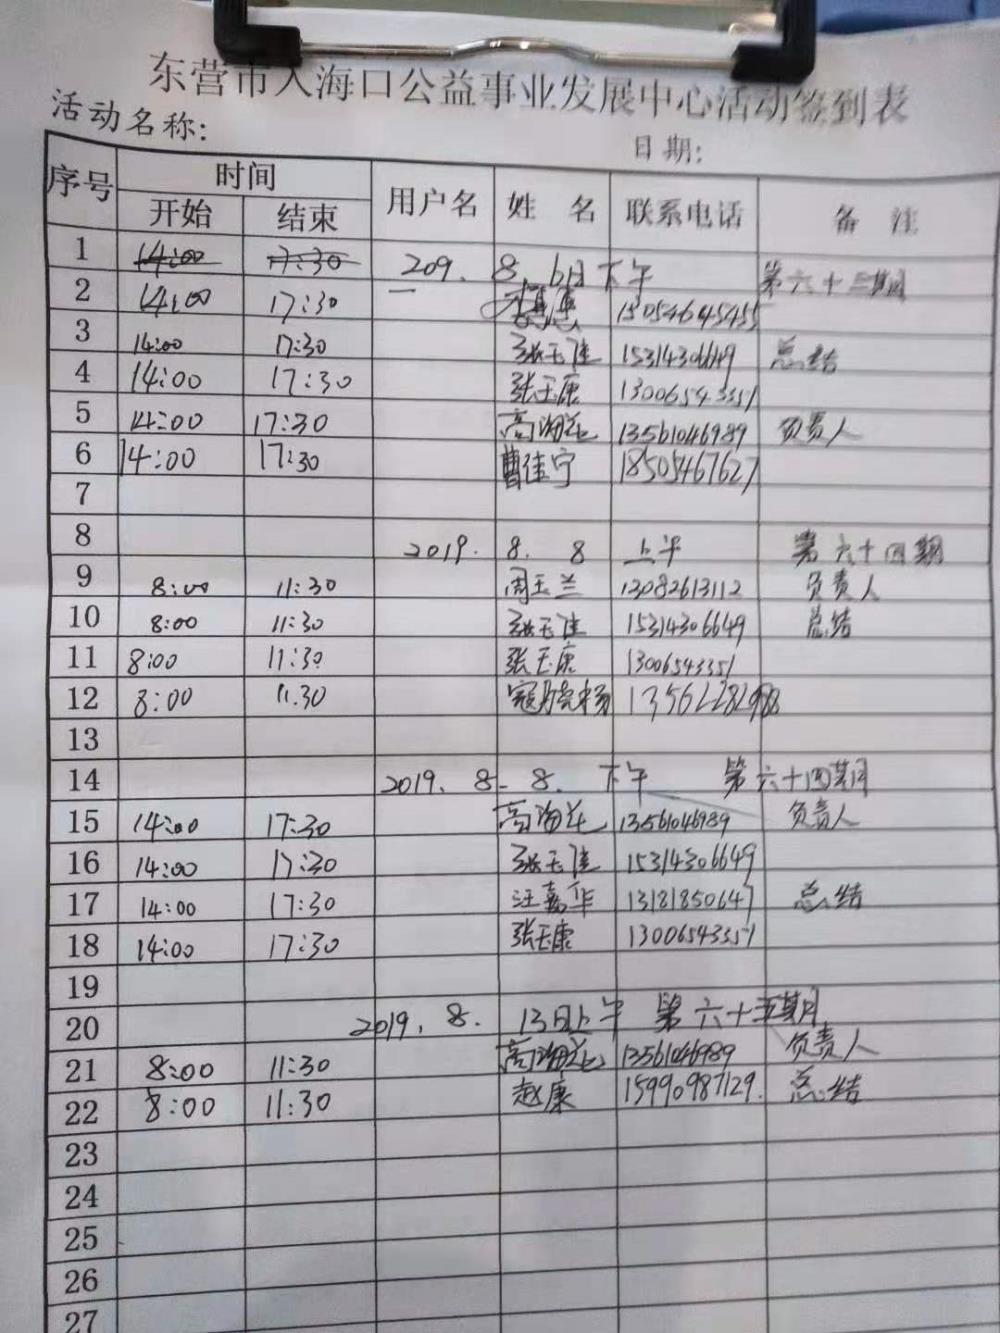 东营市入海口公益事业发展中心活动签到表
活动名称: 日期:
序号 时间 用户名 姓名 联系电话 备注
开始 结束
1 14:00 17:30 209. 8. 6日下午 第六十三期
2 14:00 17:30
3 14:00 17:30 张玉佳 15314306649 总结
4 14:00 17:30 张玉康 13006543351
5 14:00 17:30 高海花 13561046989 负责人
6 14:00 17:30 曹佳宁 18505467627
7
8 2019. 8. 8 上午 第六十四期
9 8:00 11:30 周玉兰 13082613112 负责人
10 8:00 11:30 张玉佳 15314306649 总结
11 8:00 11:30 张玉康 13006543351
12 8:00 11.30
13
14 2019. 8- 8. 下午 第六十四期
15 14:00 17:30 高海花 13561046989 负责人
16 14:00 17:30 张玉佳 15314306649
17 14:00 17:30 汪嘉华 13181850647 总结
18 14:00 17:30 张玉康 13006543351
19
20 2019. 8. 13日上午 第六十五期
21 8:00 11:30 高海花 13561046989 负责人
22 8:00 11:30 赵康 15990987129. 总结
23
24
25
26
27